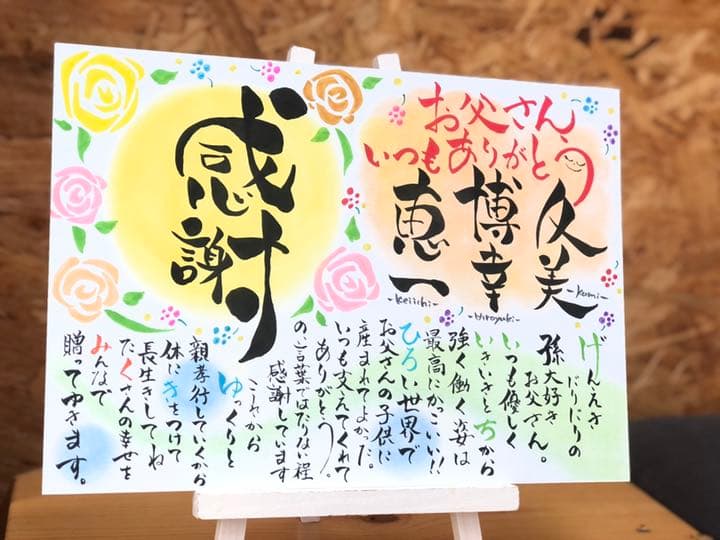 お父さん、
いつもありがとう
久美
-Kumi-
博幸
-Hiroyuki-
恵一
-Keiichi-
感謝
げんえき
ばりばりの
孫大好き
お父さん。
いつも優しく
いきいきとちから
強く働く姿は
最高にかっこいい!!
ひろい世界で
お父さんの子供に
産まれてよかった。
いつも支えてくれて
ありがとう。
の言葉ではたりない程
感謝しています
これから
ゆっくりと
親孝行していくから
体にきをつけて
長生きしてね
たくさんの幸せを
みんなで
贈ってゆきます。